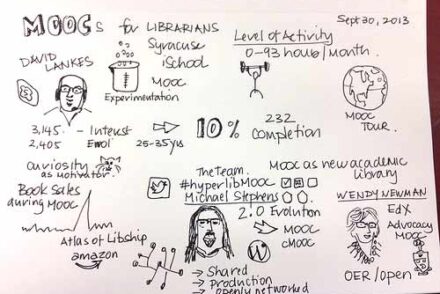 MOOCs for LIBRARIANS
Sept 30, 2013
DAVID
LANKES
Syracuse
iSchool
MOOC
Experimentation
Level of Activity
0-93 hours/month.
MOOC
TOUR.
3,145 - Interest
2,405 Enrol
25-35 yrs
10%
232
completion
curiosity
as motivator
Book Sales
during MOOC
Atlas of Libship
amazon
The Team
#hyperlibMOOC
Michael Stephens
2.0 Evolution
MOOC
cMOOC
→ Shared
→ Production
→ openly networked
MOOC as new academic
Library
WENDY NEWMAN
EdX
Advocacy
MOOC
OER/open